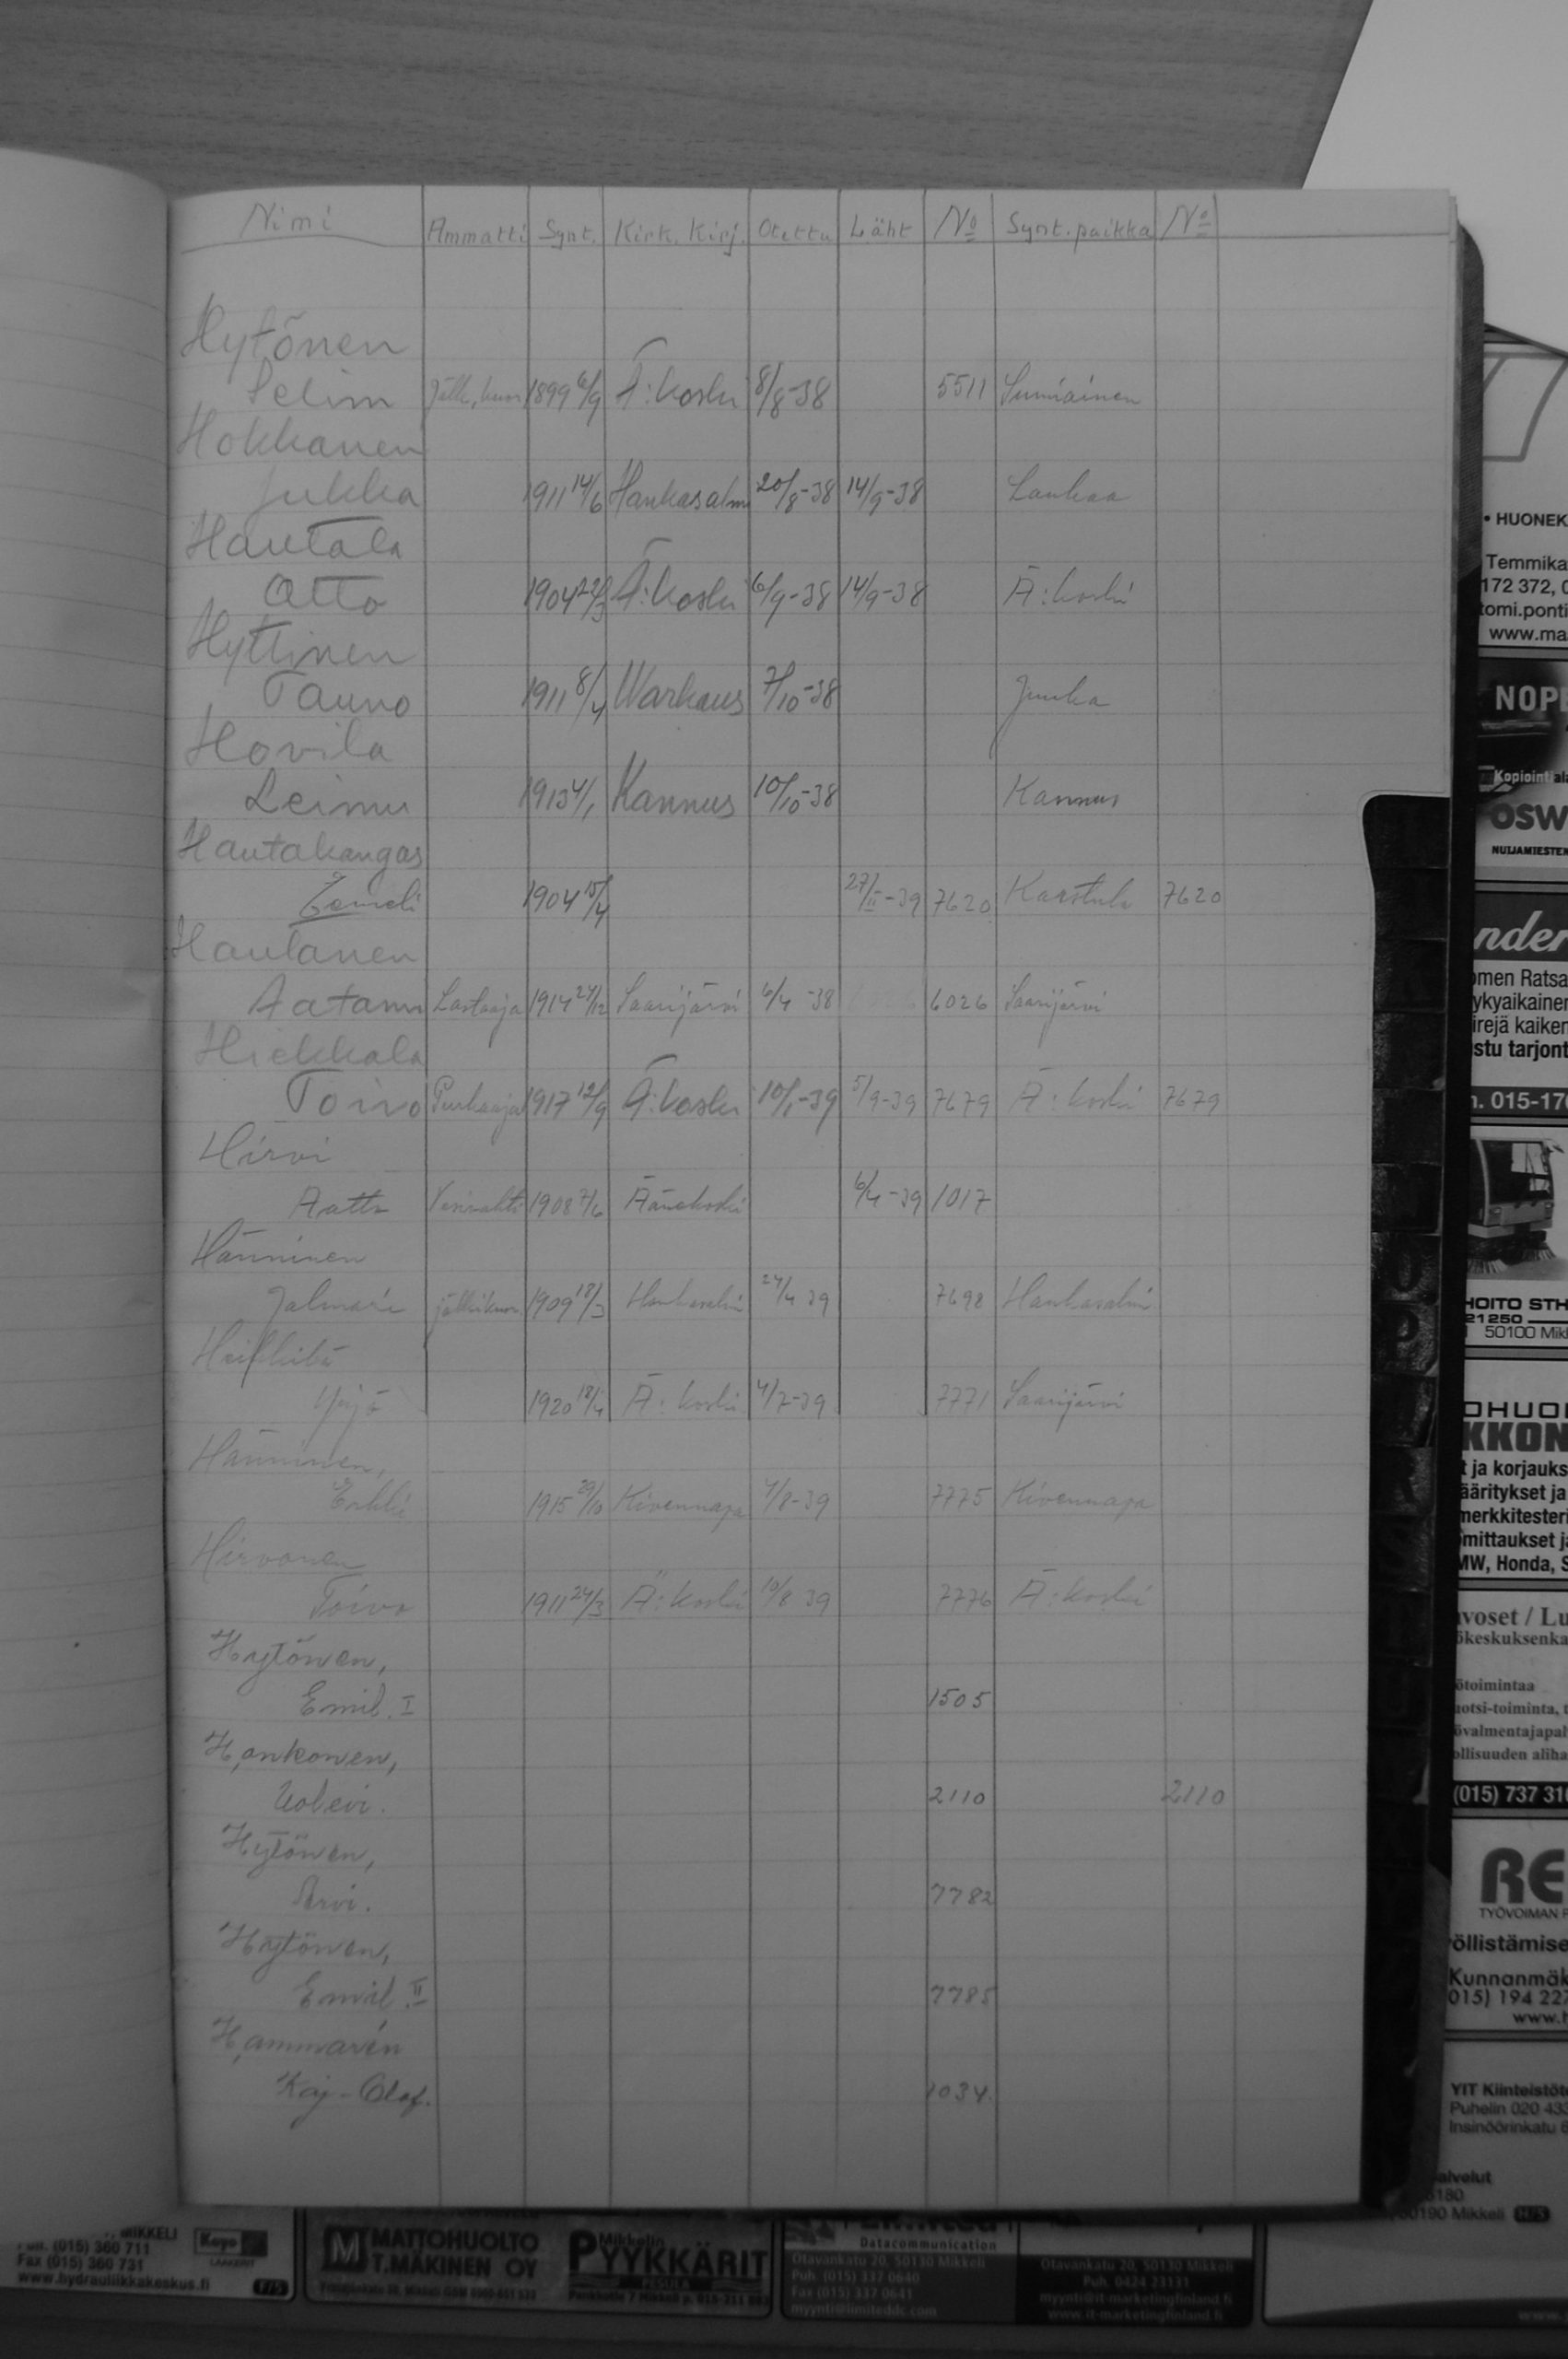 Nimi Ammatti Synt. Kirk. Kirj. Otettu Läht № Synt. paikka №
Hytönen
Selim Jälk, kun 1899 6/9 Ä:koski 8/8-38 5511 Sumiainen
Hokkanen
Jukka 1911 14/6 Hankasalmi 20/8-38 14/9-38 Laukaa
Hautala
Otto 1904 Ä:koski 6/9-38 14/9-38 Ä:koski
Hyttinen
Tauno 1911 8/4 Warkaus 7/10-38 Juuka
Hovila
Leimu 1913 4/1 Kannus 10/10-38 Kannus
Hautakangas
Eemeli 1904 15/4 27/II-39 7620 Karstula 7620
Hautanen
Aatami Lastaaja 1914 24/12 Saarijärvi 6/4 -38 6026 Saarijärvi
Hiekkala
Toivo Purkaaja 1917 12/9 Ä:koski 10/1-39 5/9-39 7679 Ä:koski 7679
Hirvi
Aatto Vesivahti 1908 7/6 Äänekoski 6/4-39 1017
Hänninen
Jalmari jälkikun. 1909 18/3 Hankasalmi 24/4 39 7698 Hankasalmi
Heikkilä
Yrjö 1920 18/4 Ä:koski 4/7-39 7771 Saarijärvi
Hänninen,
Erkki 1915 29/10 Kivennapa 4/8-39 7775 Kivennapa
Hirvonen
Toivo 1911 24/3 Ä:koski 10/8 39 7776 Ä:koski
Hytönen,
Emil. I 1505
Honkonen,
Uolevi. 2110 2110
Hytönen,
Arvi. 7782
Hytönen,
Emil. II 7785
Hammarén
Kaj-Olof. 1034.
• HUONEK
Temmika
172 372, 0
tomi.ponti
www.ma
NOP
Kopiointiala
OSW
NUIJAMIESTEN
nder
omen Ratsa
ykyaikainen
irejä kaiken
stu tarjont
h. 015-170
HOITO STH
21250
50100 Mikk
OHUO
KKON
t ja korjauks
ääritykset ja
merkkitesteri
omittaukset ja
MW, Honda, S
voset / Lu
ökeskuksenka
ötoimintaa
uotsi-toiminta, t
övalmentajapal
ollisuuden aliha
(015) 737 310
RE
TYÖVOIMAN P
öllistämise
Kunnanmäk
015) 194 227
www.h
YIT Kiinteistöte
Puhelin 020 433
Insinöörinkatu 8
alvelut
5180
50190 Mikkeli H/5
MIKKELI
Puh. (015) 360 711
Fax (015) 360 731
www.hydrauliikkakeskus.fi F/5
Koyo
LAAKERIT
M MATTOHUOLTO
T.MÄKINEN OY
Mikkelin
PYYKKÄRIT
PESULA
Datacommunication
Otavankatu 20, 50130 Mikkeli
Puh. (015) 337 0640
Fax (015) 337 0641
myynti@limiteddc.com
Otavankatu 20, 50130 Mikkeli
Puh. 0424 23131
myynti@it-marketingfinland.fi
www.it-marketingfinland.fi